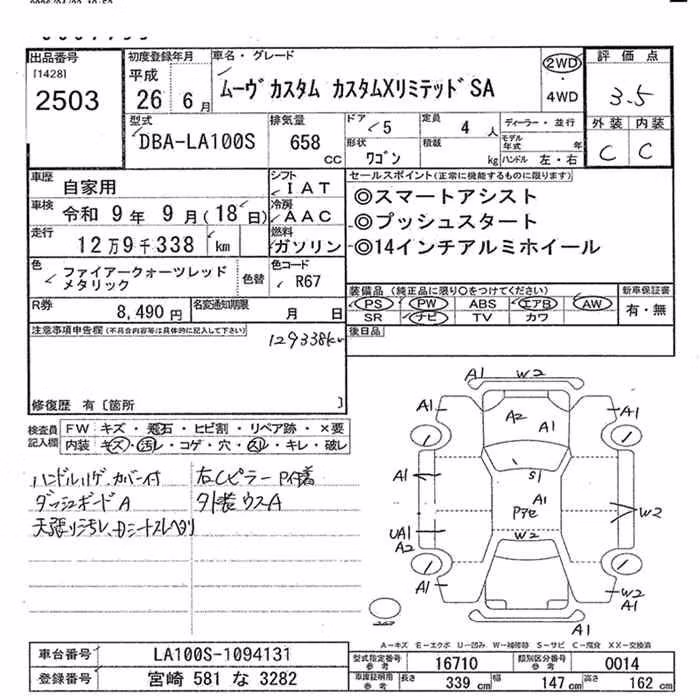 出品番号
[1428]
2503
初度登録年月
平成
26 年 6 月
車名・グレード
ムーヴカスタム カスタムXリミテッドSA
2WD
・
4WD
評価点
3.5
外装 内装
C C
型式
DBA-LA100S
排気量
658 cc
ドア
5
定員
4 人
形状
ワゴン
積載
kg
ディーラー・並行
モデル年式 年
ハンドル 左・右
車歴
自家用
車検
令和 9 年 9 月(18 日)
走行
12万9千338 km
シフト
IAT
冷房
AAC
燃料
ガソリン
色
ファイアークォーツレッド
メタリック
色替
色コード
R67
R券
8,490 円
名変通知期限
月 日
セールスポイント(正常に機能するものに限ります)
◎スマートアシスト
◎プッシュスタート
◎14インチアルミホイール
装備品 (純正品に限り○をつけてください)
PS PW ABS エアB AW
SR ナビ TV カワ
新車保証書
有・無
後日品
注意事項申告欄(不具合内容等は具体的に記入して下さい)
129338km
修復歴 有〔箇所 〕
検査員
記入欄
FW キズ・飛石・ヒビ割・リペア跡・×要
内装 キズ・汚レ・コゲ・穴・スレ・キレ・破レ
ハンドルハゲ、カバー付
ダッシュボードA
右Cピラー
外装ウスA
A1 W2
A1 A2 A1 A1
S1
A1 A1
Pアセ
W2
UA1
A2
W2
A1 W2
A1
A1
A=キズ E=エクボ U=凹み W=補修跡 S=サビ C=腐食 XX=交換済
車台番号
LA100S-1094131
登録番号
宮崎 581 な 3282
型式指定番号
参考
16710
類別区分番号
参考
0014
車庫証明用
参考
長さ 339 cm 幅 147 cm 高さ 162 cm